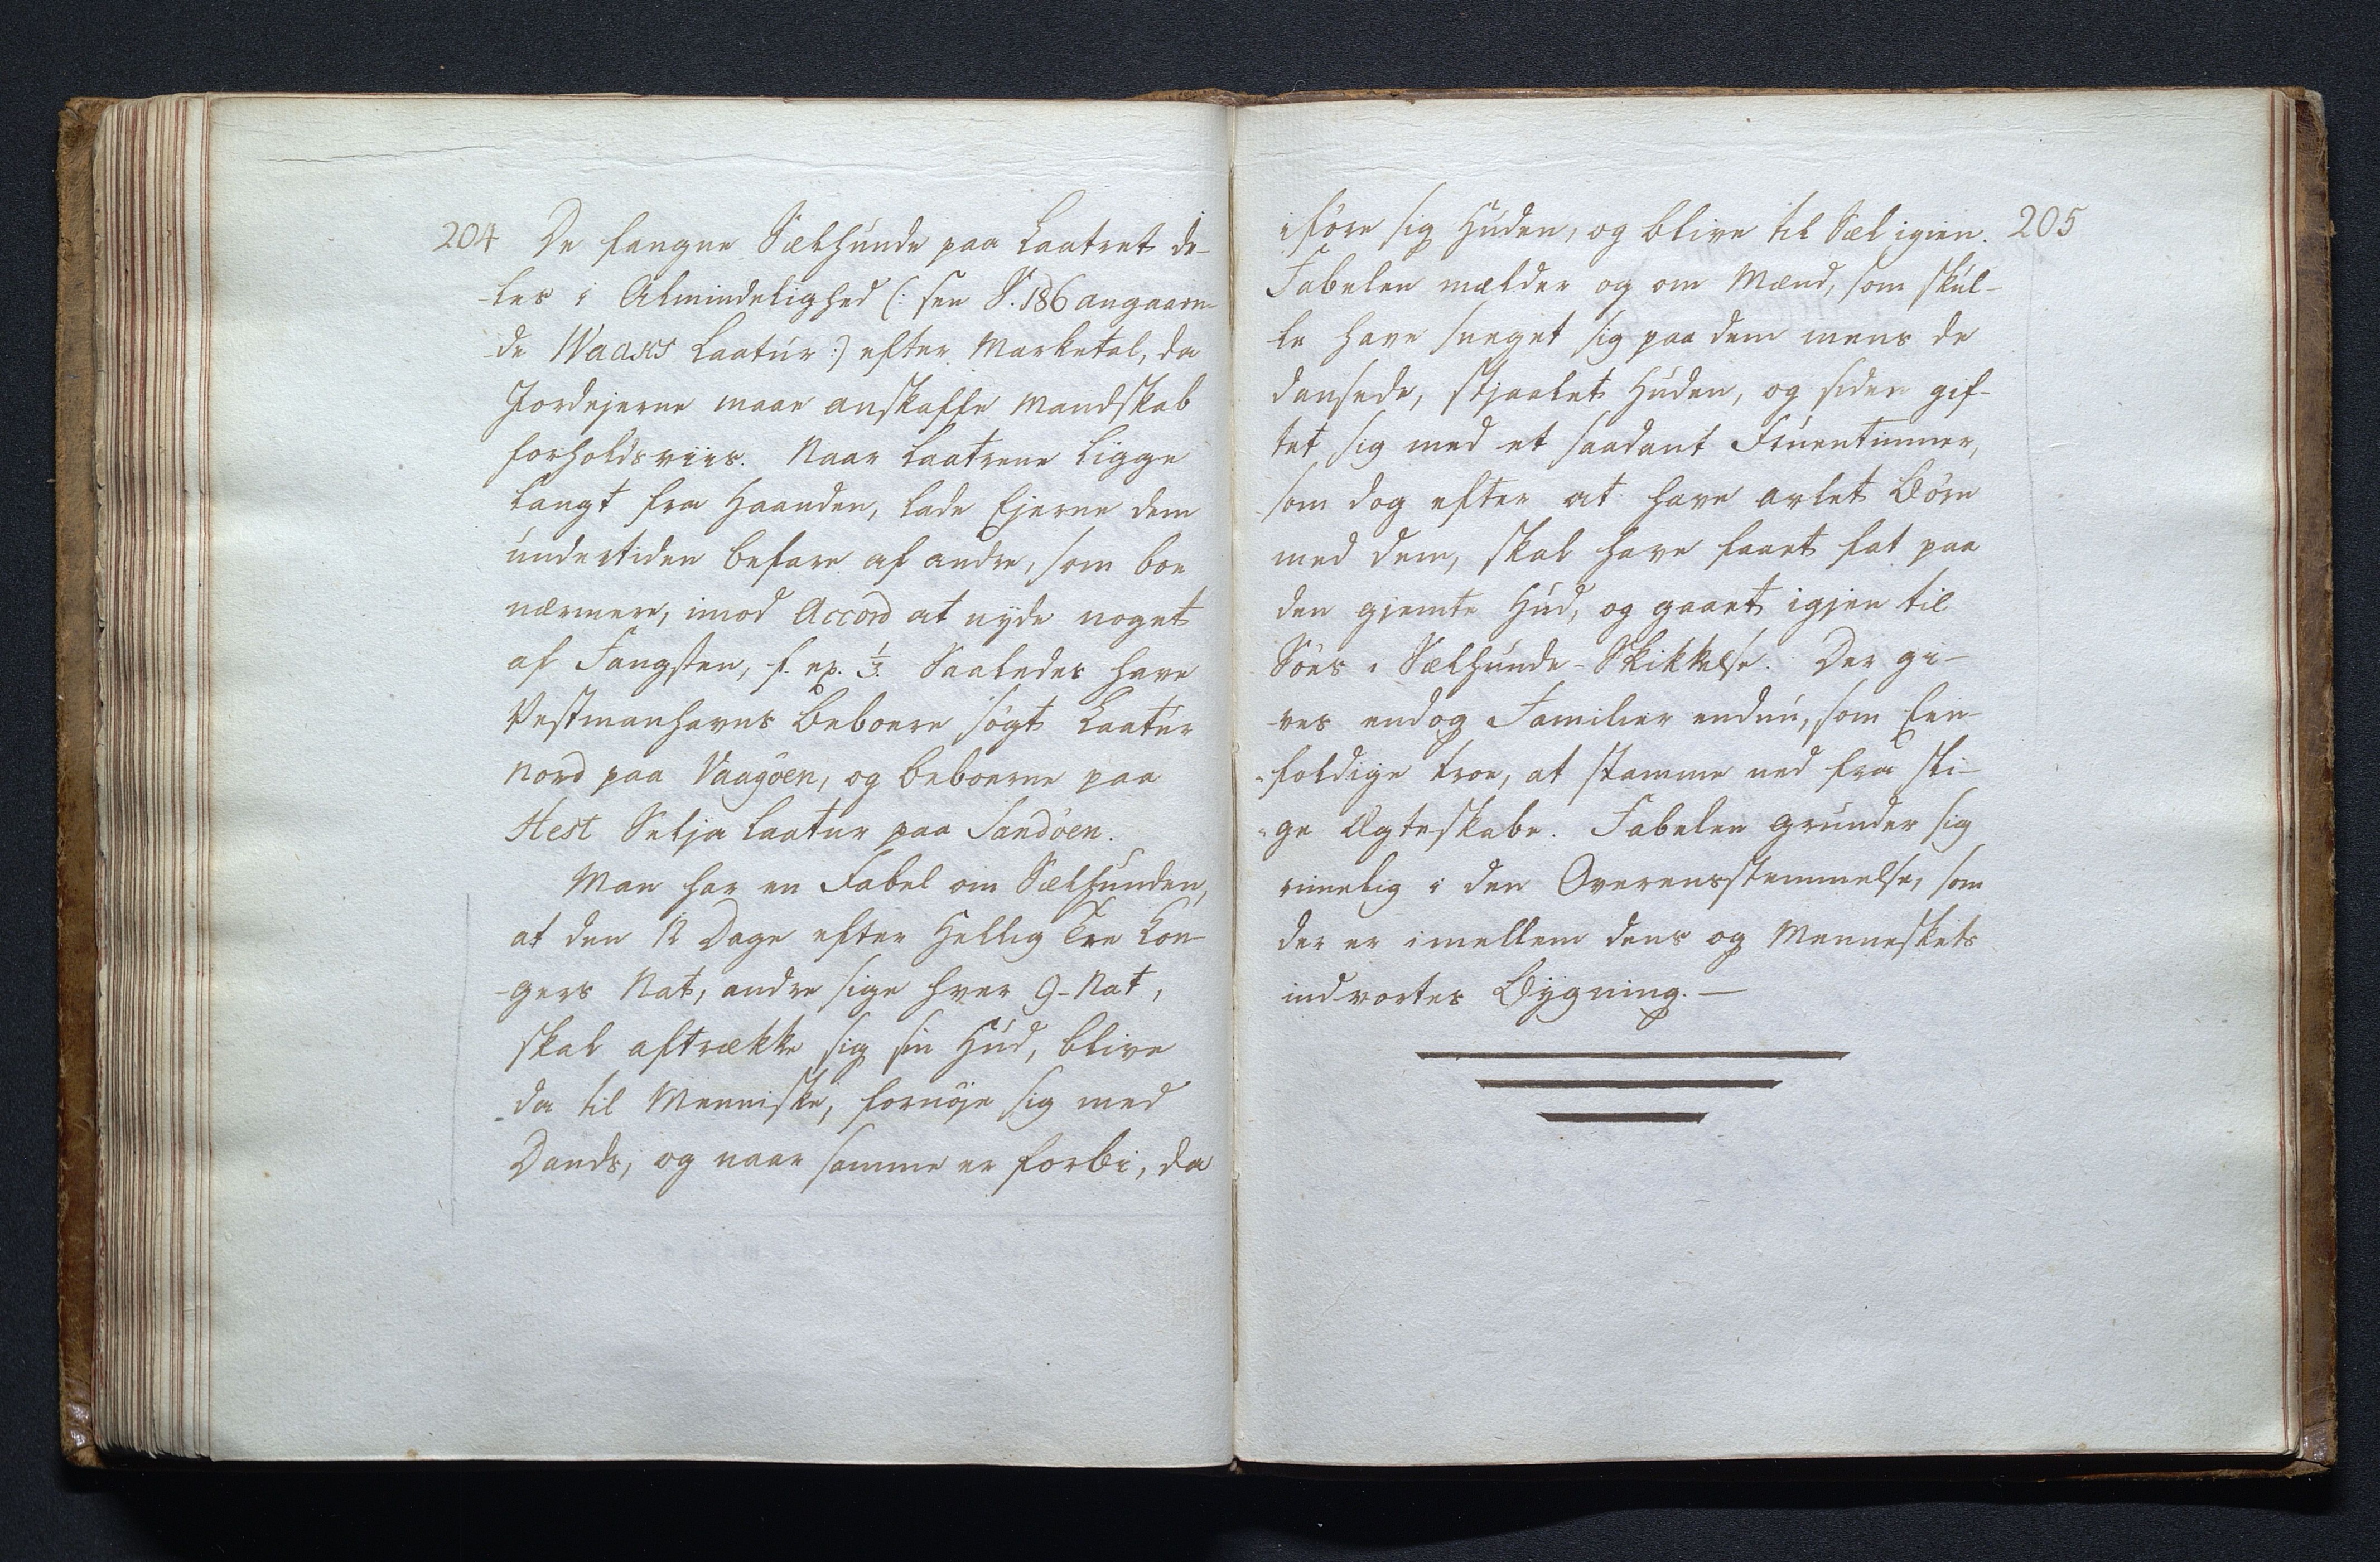 204 De fangne Sælhunde paa Laatret de-
les i Almindelighed (: see S. 186 angaaen-
de Waags Laatur :) efter Marketal, da
Jordejerne maae anskaffe Mandskab
forholdsviis. Naar Laatrene ligge
langt fra Haanden, lade Ejerne dem
undertiden befare af andre, som boe
nærmere, imod Accord at nyde noget
af Fangsten, f. ex. 1/3. Saaledes have
Vestmanhavns Beboere søgt Laatur
Nord paa Vaagöen, og Beboerne paa
Hest Selja Laatur paa Sandöen.
Man har en Fabel om Sælhunden,
at den 12 Dage efter Hellig Tre Kon-
gers Nat, andre sige hver 9-Nat,
skal aftrække sig sin Hud, blive
da til Menniske, fornöje sig med
Dands, og naar samme er forbi, da
iföre sig Huden, og blive til Sæl igien. 205
Fabelen mælder og om Mænd, som skul-
le have sneget sig paa dem mens de
dansede, stjaalet Huden, og siden gif-
tet sig med et saadant Fruentimmer,
som dog efter at have avlet Börn
med dem, skal have faaet fat paa
den gjemte Hud, og gaaet igjen til
Söes i Sælhunde-Skikkelse. Der gi-
ves endog Familier endnu, som Een-
foldige troe, at stamme ned fra sli-
ge Ægteskabe. Fabelen grunder sig
rimelig i den Overensstemmelse, som
der er imellem dens og Menneskets
indvortes Bygning. —